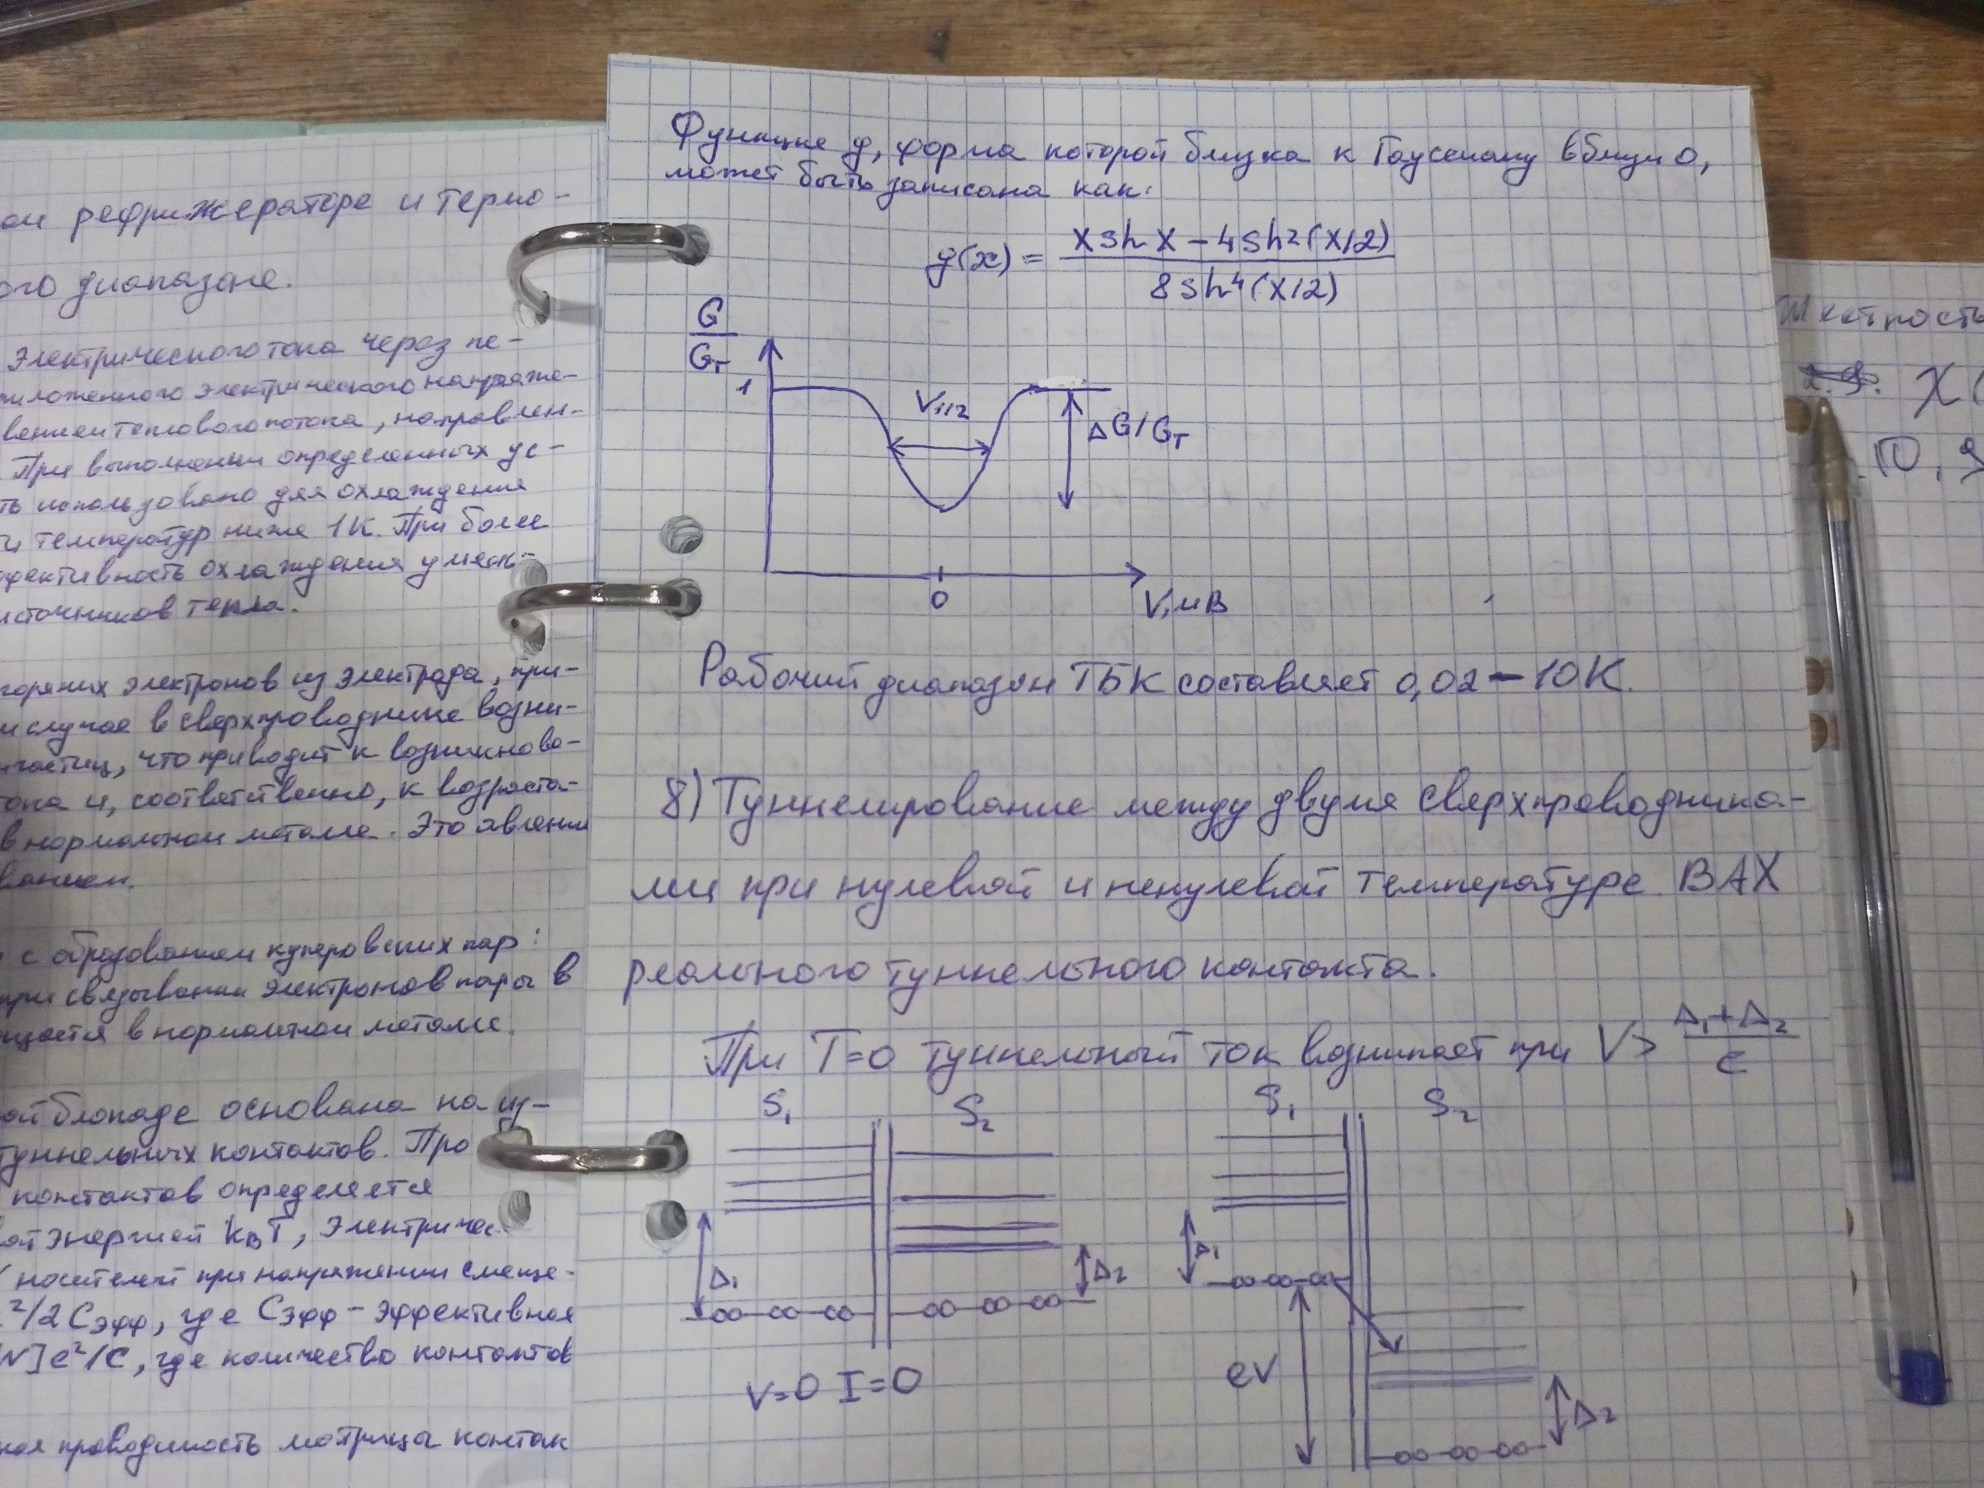 рефрижераторе и термо-
ого диапазоне.
электрического тока через пе-
иложенного электрического напряже-
вением теплового потока, направлен-
При выполнении определенных ус-
ть использовано для охлаждения
и температур ниже 1К. При более
фективность охлаждения умень-
источников тепла.
горячих электронов из электрада, при-
м случае в сверхпроводнике возни-
частиц, что приводит к возникнове-
тока и, соответственно, к возраста-
в нормальном металле. Это явление
ванием.
с образованием куперовских пар:
при связывании электронов пары в
щается в нормальном металле.
ой блокаде основана на из-
туннельных контактов. Про
контактов определяется
ой энергией kвT, электричес-
носителей при напряжении смеще-
²/2Cэфф, где Cэфф - эффективная
N]e²/C, где количество контактов
ная проводимость матрицы контак
Функция g, форма которой близка к Гауссиану вблизи 0,
может быть записана как:
g(x) = (x sh x - 4sh²(x/2)) / (8sh⁴(x/2))
G/Gт
1
V1/2
ΔG/Gт
0
V, мВ
Рабочий диапазон ТБК составляет 0,02 - 10К.
8) Туннелирование между двумя сверхпроводника-
ми при нулевой и ненулевой температуре. ВАХ
реального туннельного контакта.
При T=0 туннельный ток возникает при V> (Δ₁+Δ₂)/e
S₁ S₂ S₁ S₂
Δ₁ Δ₂ Δ₁
V=0 I=0
eV
Δ₂
X(